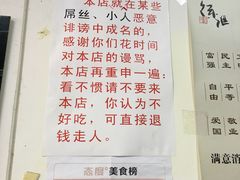 本店就在某些
屌丝、小人恶意
诽谤中成名的，
感谢你们花时间
对本店的谩骂，
本店再重申一遍：
看不惯请不要来
本店，你认为不
好吃，可直接退
钱走人。
美食榜
富强
民主
文明
自由
平等
爱国
敬业
满意消